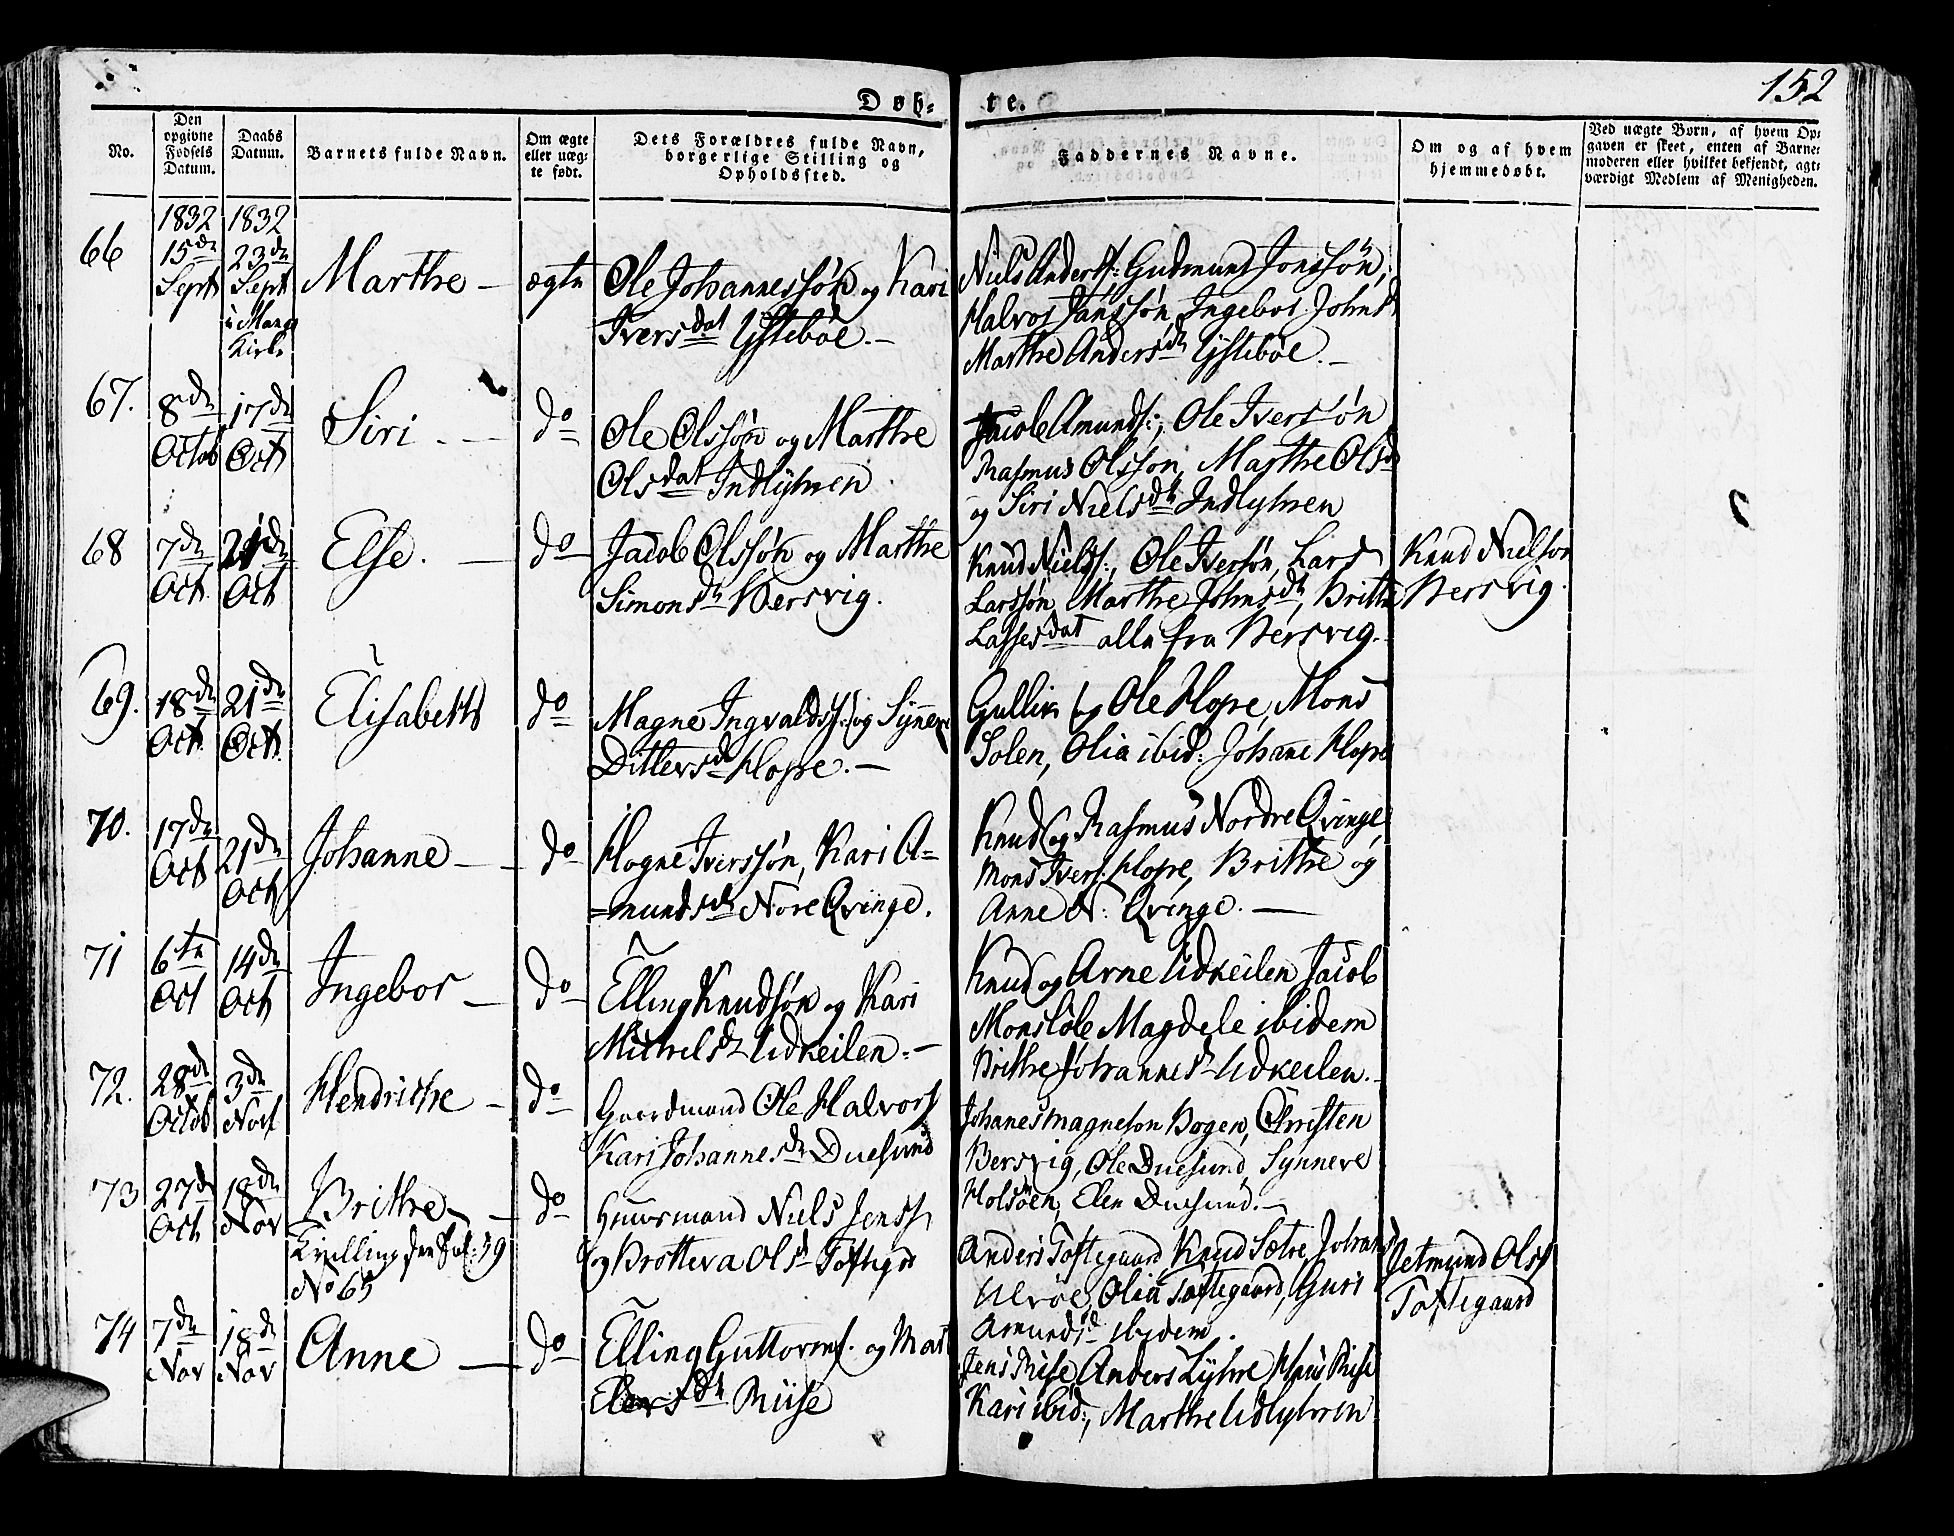 152
Døb-
te.
No.
Den opgivne Fødsels Datum.
Daabs Datum.
Barnets fulde Navn.
Om ægte eller uægte født.
Dets Forældres fulde Navn, borgerlige Stilling og Opholdssted.
Faddernes Navne.
Om og af hvem hjemmedøbt.
Ved uægte Børn, af hvem Opgaven er skeet, enten af Barnemoderen eller hvilket bekjendt, agtværdigt Medlem af Menigheden.
66
1832
15de
Sept
1832
23de
Sept
i
Kirke
Marthe
ægte
Ole Johannessøn og Kari
Iversdat Ystebøe.
Niels Anderss: Gudmund Jonssøn,
Halvor Janssøn, Ingebor Johnsd
Marthe Andersdr Ystebøe.
67.
8de
Octob
17de
Oct
Siri
do
Ole Olssøn og Marthe
Olsdat Indlyhren
Jacob Amunds:, Ole Iverssøn
Rasmus Olsson, Marthe Olsd
og Siri Nielsdr Indlyhren
68
7de
Oct.
21de
Oct
Else.
do
Jacob Olssøn og Marthe
Simonsdr Hersvig.
Knud Niels:, Ole Iversøn, Lars
Larssøn, Marthe Johnsdr, Britte
Lassesdat alle fra Hersvig.
Knud Nielson
Hersvig.
69.
18de
Oct.
21de
Oct.
Elisabeth
do
Magne Ingvaldss: og Synneve
Dittersdr Hope.
Gullik og Ole Hope, Mons
Solen, Olia ibid: Johanne Hope
70.
17de
Oct
21de
Oct
Johanne
do
Hogne Iverssøn, Kari A-
mundsdr Nore Qvinge.
Knud og Rasmus Nordre Qvinge
Mons Ivers: Hope, Brithe og
Anne N: Qvinge.
71
6te
Oct
14de
Oct
Ingebor
do
Elling Knudsøn og Kari
Michelsdr Udkeilen.
Knud og Arne Udkeilen, Jacob
Monsløb Magdele ibidem
Brithe Johannesdr Udkeilen.
72.
28de
Octob
3de
Nov
Hendrikke
do
Gaardmand Ole Halvors
Kari Johannesdr Duesund
Johanes Magneson Bogen, Christen
Hersvig, Ole Duesund, Synneve
Holsøen, Elen Duesund.
73
27de
Oct
18de
Nov
Brithe
Tvilling See Pag: 39
No 65
do
Huusmand Niels Jenss
og Brotteva Olsd Toftegrd
Anders Toftegaard, Knud Sætre, Johans
Ulvøe, Olia Toftegaard, Guri
Amundsd ibidem.
Jetmund Olss
Toftegaard
74
7de
Nov
18de
Nov
Anne
do
Elling Guttorms. og Mar
Elersdr Riise
Jens Riise, Anders Lyhre, Hans Riise
Kari ibid:, Marthe Udlyhren